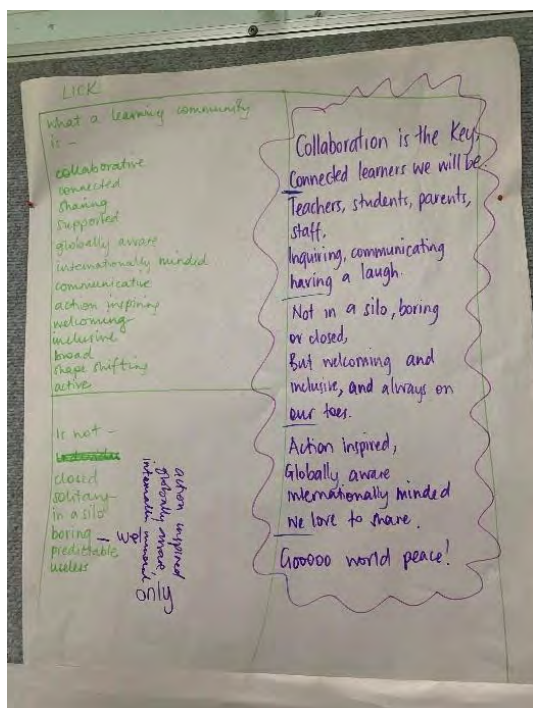 What a learning community
is -
collaborative
connected
sharing
supported
globally aware
internationally minded
communicative
action inspiring
welcoming
inclusive
broad
shape shifting
active
Is not -
closed
solitary
in a silo
boring
predictable
useless
action inspired
globally aware,
internationally minded
only
Collaboration is the Key,
Connected learners we will be.
Teachers, students, parents,
staff,
Inquiring, communicating
having a laugh.
Not in a silo, boring
or closed,
But welcoming and
inclusive, and always on
our toes.
Action inspired,
Globally aware
internationally minded
We love to share.
Gooooo world peace!